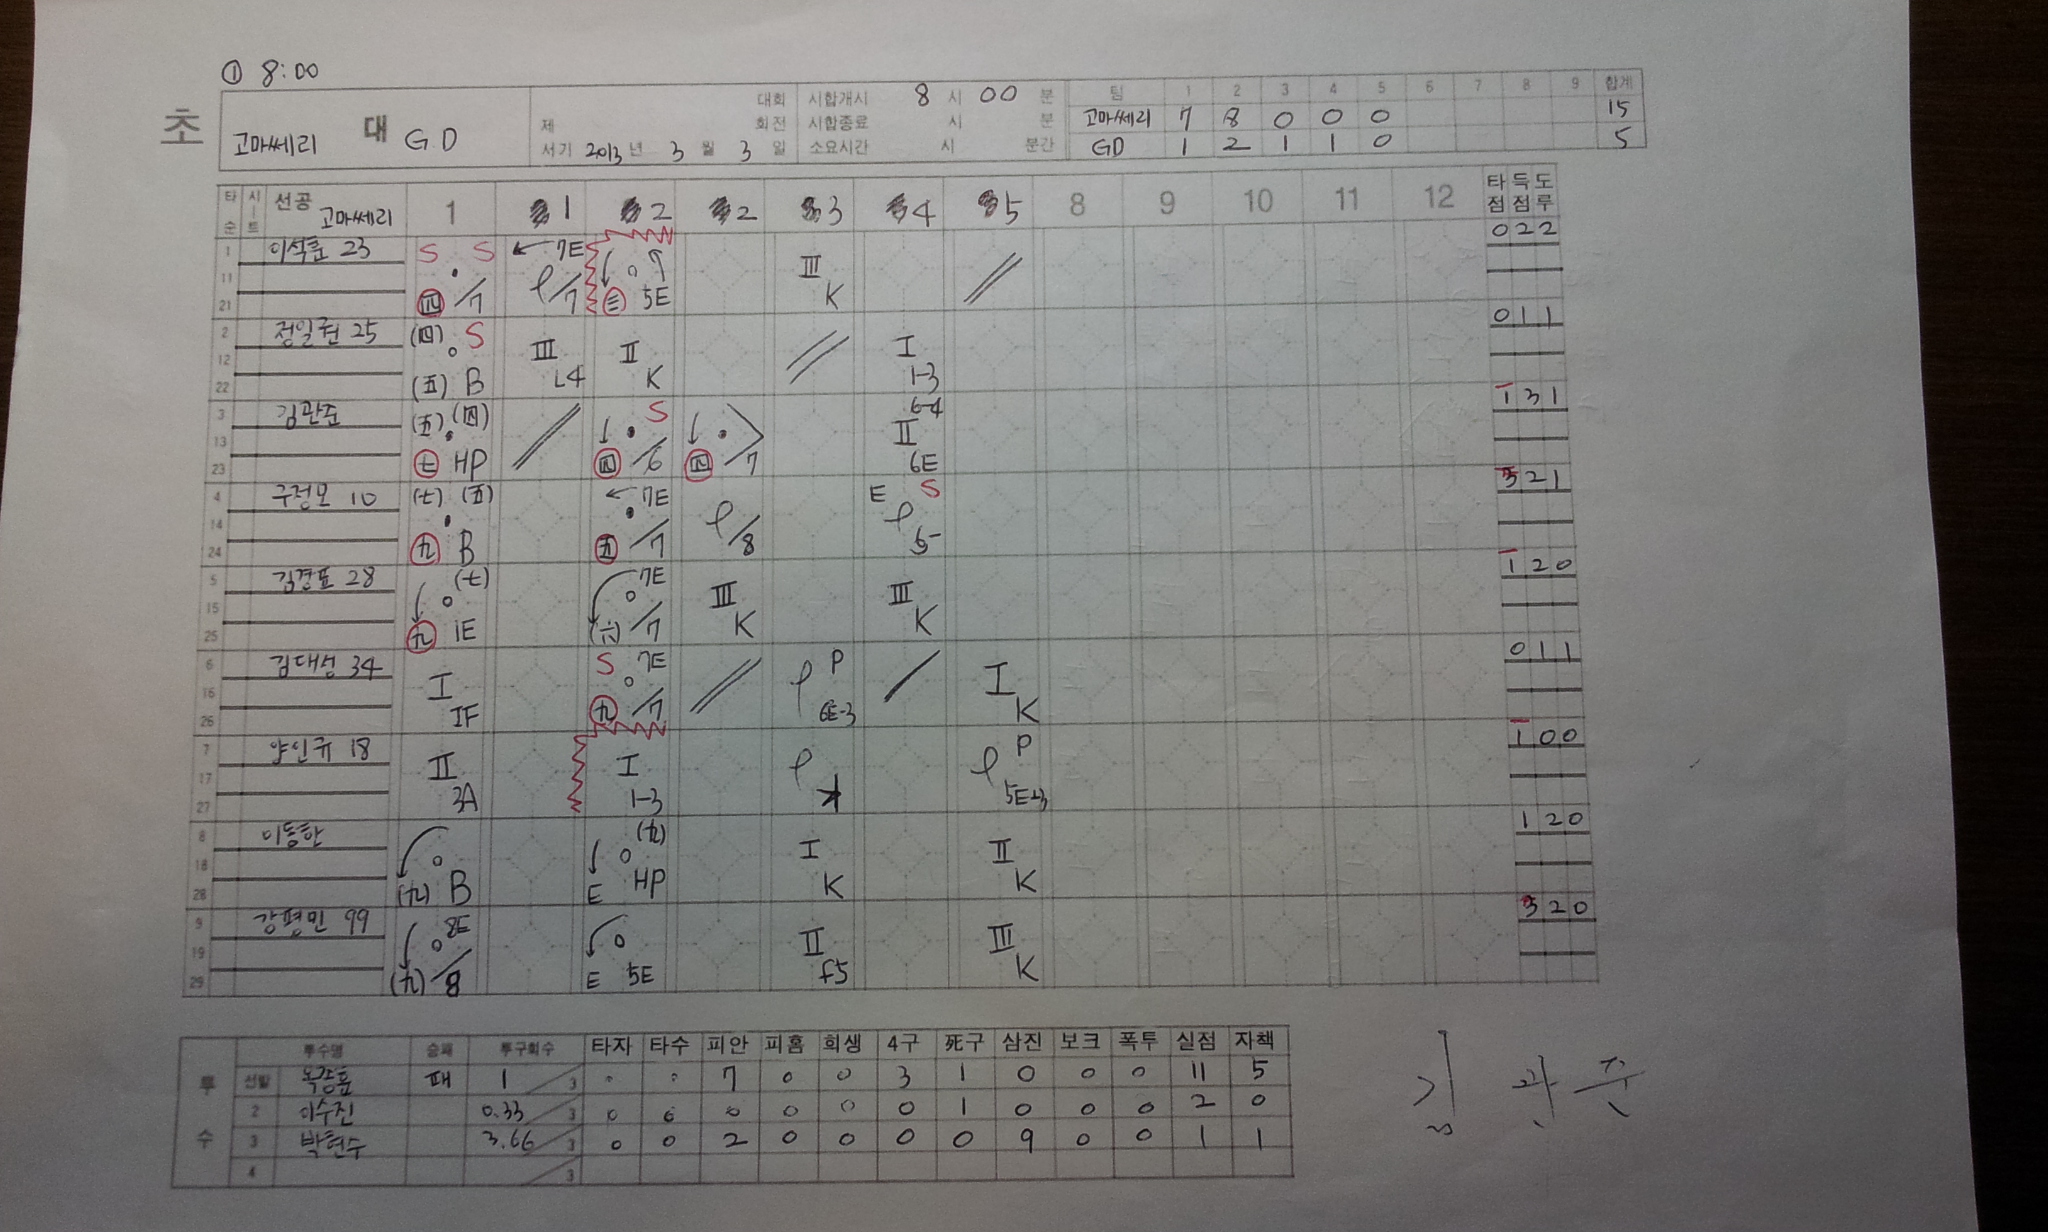 ① 8:00
초
고마쎄리 대 GD
제 대회
회전
서기 2013 년 3 월 3 일
시합개시 8 시 00 분
시합종료 시 분
소요시간 시 분간
팀 1 2 3 4 5 6 7 8 9 합계
고마쎄리 7 8 0 0 0 15
GD 1 2 1 1 0 5
타순 시트 선공 고마쎄리 1 1 2 2 3 4 5 8 9 10 11 12 타점 득점 도루
1 이석훈 23 S S 7E 0 2 2
11 Ⅲ
21 四 /7 /7 三 5E K
2 정일권 25 (四) S 0 1 1
12 Ⅲ Ⅱ Ⅰ
22 (五) B L4 K 1-3
3 김관준 (五) (四) S 6-4 1 3 1
13 Ⅱ
23 七 HP 四 /6 四 /7 6E
4 구정모 10 (七) (五) 7E E S 3 2 1
14
24 九 B 五 /7 /8
5 김경표 28 (七) 7E 1 2 0
15 Ⅲ Ⅲ
25 九 1E (六) /7 K K
6 김대성 34 S 7E P 0 1 1
16 Ⅰ Ⅰ
26 IF 九 /7 6E-3 K
7 양인규 18 P 1 0 0
17 Ⅱ Ⅰ
27 3A 1-3 5E-3
8 이동한 (九) 1 2 0
18 Ⅰ Ⅱ
28 (九) B E HP K K
9 강평민 99 8E 3 2 0
19 Ⅱ Ⅲ
29 (九) /8 E 5E f5 K
투수 투수명 승패 투구회수 타자 타수 피안 피홈 희생 4구 死구 삼진 보크 폭투 실점 자책
선발 패 1 /3 7 0 0 3 1 0 0 0 11 5
2 이수진 0.33 /3 0 0 0 0 0 0 1 0 0 0 2 0
3 박현수 3.66 /3 0 0 2 0 0 0 0 9 0 0 1 1
4 /3
김관준